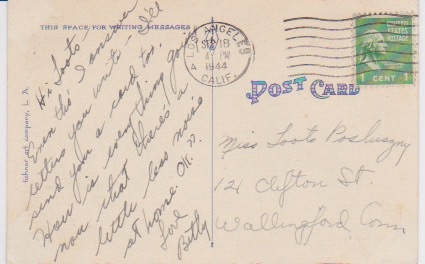 THIS SPACE FOR WRITING MESSAGES
Hi Toots
Even tho' I answer
letters you write I'll
send you a card too.
How is everything going
now that there's a
little less noise
at home. OK. ??
Love
Betty
tichnor art company, L. A.
LOS ANGELES
SEP 18
PM
1944
CALIF.
POST CARD
UNITED STATES
POSTAGE
1 CENT 1
Miss Toots Posluszny
121 Clifton St.
Wallingford Conn